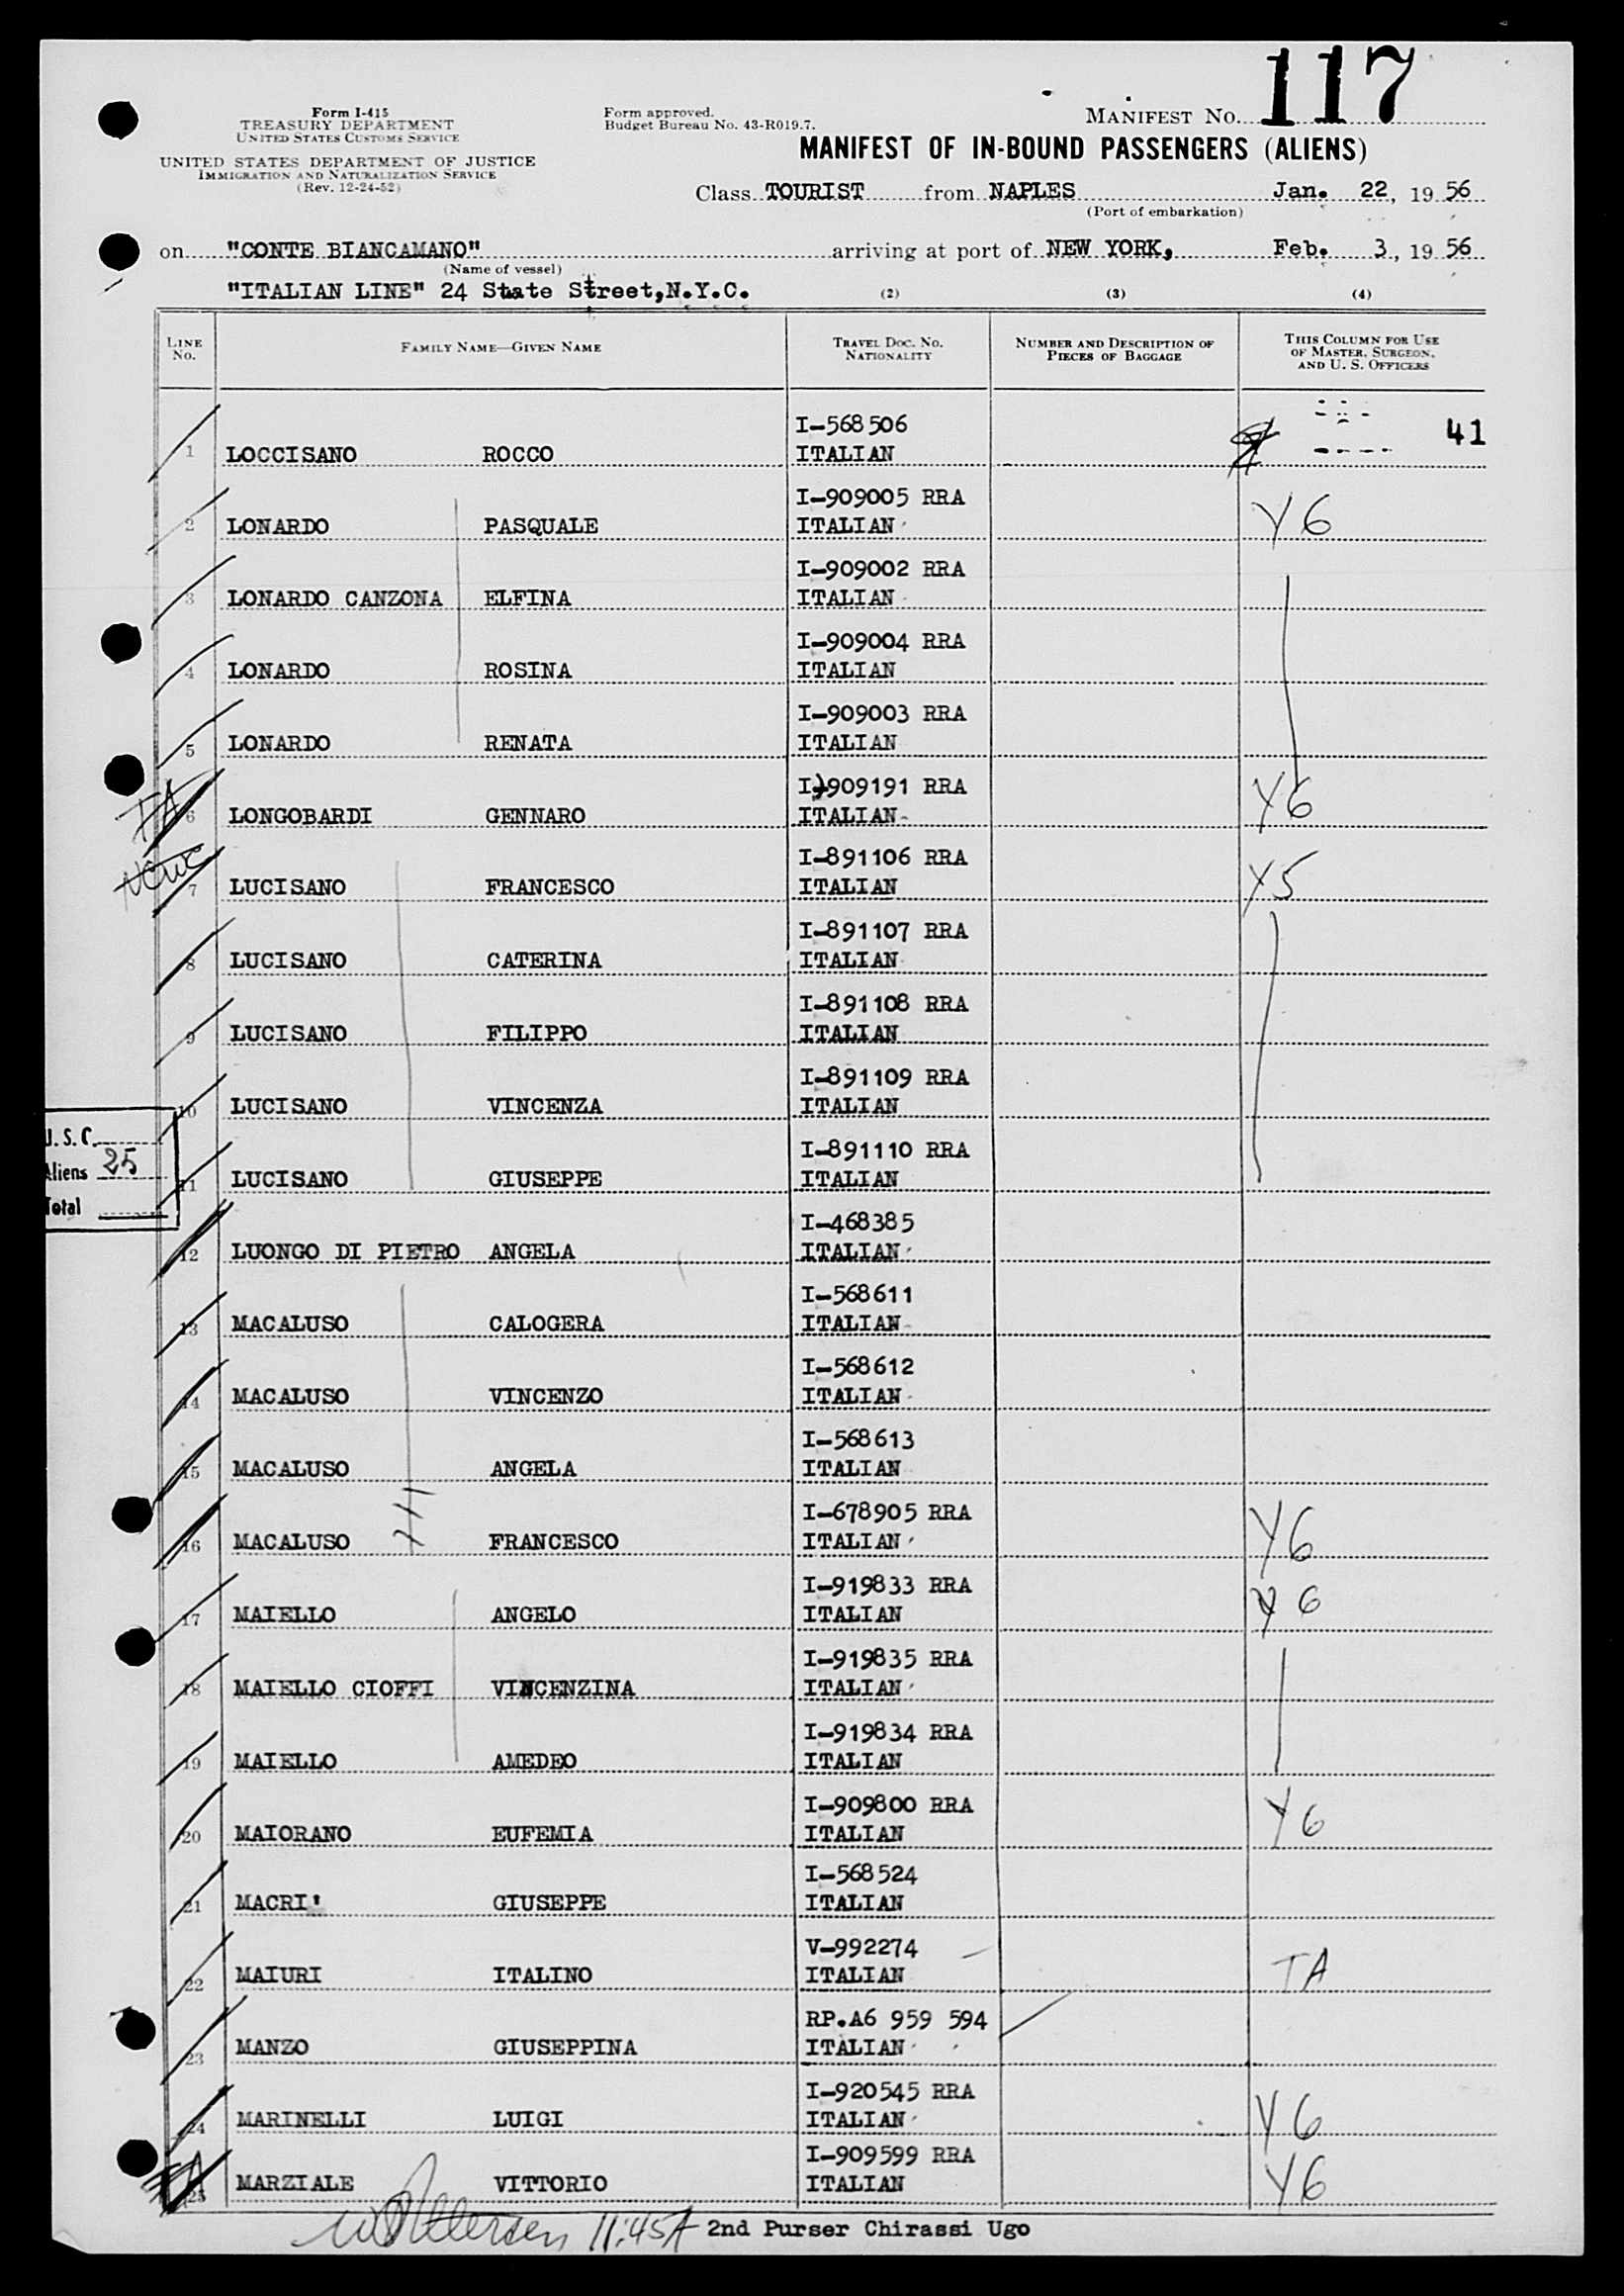 117
Form I-415
TREASURY DEPARTMENT
UNITED STATES CUSTOMS SERVICE
UNITED STATES DEPARTMENT OF JUSTICE
IMMIGRATION AND NATURALIZATION SERVICE
(Rev. 12-24-52)
Form approved.
Budget Bureau No. 43-R019.7.
MANIFEST NO.
MANIFEST OF IN-BOUND PASSENGERS (ALIENS)
Class TOURIST from NAPLES Jan. 22, 19 56
(Port of embarkation)
on "CONTE BIANCAMANO" arriving at port of NEW YORK, Feb. 3, 19 56
(Name of vessel)
"ITALIAN LINE" 24 State Street,N.Y.C. (2) (3) (4)
LINE No. FAMILY NAME—GIVEN NAME TRAVEL DOC. NO. NATIONALITY NUMBER AND DESCRIPTION OF PIECES OF BAGGAGE THIS COLUMN FOR USE OF MASTER, SURGEON, AND U. S. OFFICERS
I-568506 41
1 LOCCISANO ROCCO ITALIAN
I-909005 RRA
2 LONARDO PASQUALE ITALIAN Y6
I-909002 RRA
3 LONARDO CANZONA ELFINA ITALIAN
I-909004 RRA
4 LONARDO ROSINA ITALIAN
I-909003 RRA
5 LONARDO RENATA ITALIAN
I-909191 RRA
6 LONGOBARDI GENNARO ITALIAN Y6
I-891106 RRA
7 LUCISANO FRANCESCO ITALIAN Y5
I-891107 RRA
8 LUCISANO CATERINA ITALIAN
I-891108 RRA
9 LUCISANO FILIPPO ITALIAN
I-891109 RRA
10 LUCISANO VINCENZA ITALIAN
U.S.C.
Aliens 25
Total
I-891110 RRA
11 LUCISANO GIUSEPPE ITALIAN
I-468385
12 LUONGO DI PIETRO ANGELA ITALIAN
I-568611
13 MACALUSO CALOGERA ITALIAN
I-568612
14 MACALUSO VINCENZO ITALIAN
I-568613
15 MACALUSO ANGELA ITALIAN
I-678905 RRA
16 MACALUSO FRANCESCO ITALIAN Y6
I-919833 RRA
17 MAIELLO ANGELO ITALIAN Y6
I-919835 RRA
18 MAIELLO CIOFFI VINCENZINA ITALIAN
I-919834 RRA
19 MAIELLO AMEDEO ITALIAN
I-909800 RRA
20 MAIORANO EUFEMIA ITALIAN Y6
I-568524
21 MACRI' GIUSEPPE ITALIAN
V-992274
22 MAIURI ITALINO ITALIAN TA
RP.A6 959 594
23 MANZO GIUSEPPINA ITALIAN
I-920545 RRA
24 MARINELLI LUIGI ITALIAN Y6
I-909599 RRA
25 MARZIALE VITTORIO ITALIAN Y6
11:45A 2nd Purser Chirassi Ugo